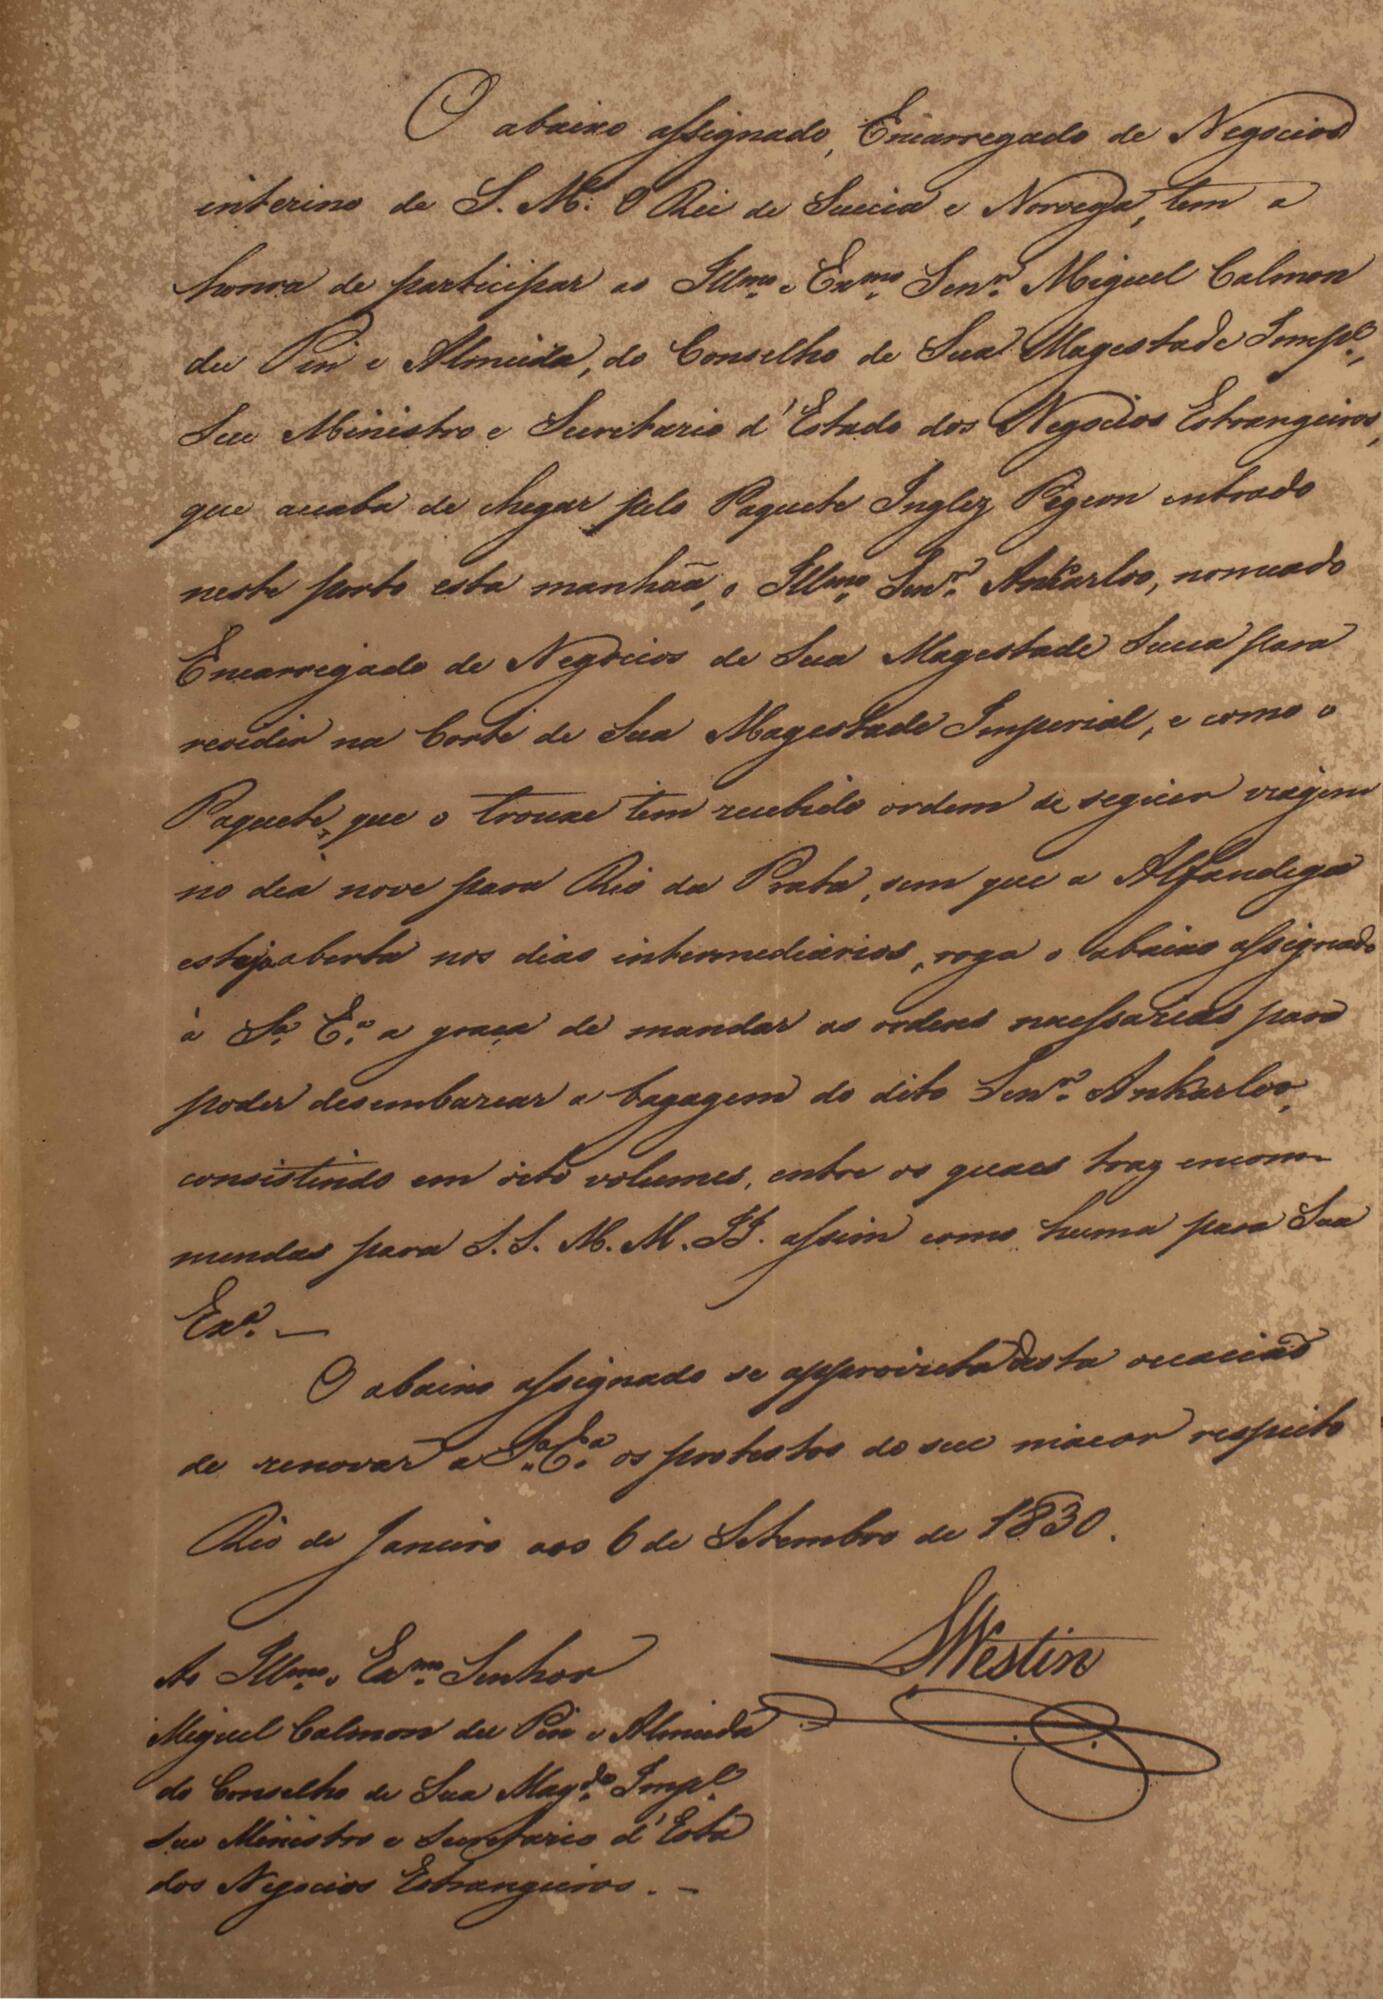 O abaixo assignado, Encarregado de Negocios
interino de S. M. O Rei de Suecia e Norvega, tem a
honra de participar ao Illmo. e Exmo. Senr. Miguel Calmon
du Pin e Almeida, do Conselho de Sua Magestade Impl.,
Seu Ministro e Secretario d'Estado dos Negocios Estrangeiros,
que acaba de chegar pelo Paquete Inglez Pigeon entrado
neste porto esta manhãa, o Illmo. Senr. Ankarloo, nomeado
Encarregado de Negocios de Sua Magestade Sueca para
residir na Corte de Sua Magestade Imperial, e como o
Paquete, que o trouxe tem recebido ordem de seguir viagem
no dia nove para Rio da Prata, sem que a Alfandega
esteja aberta nos dias intermediarios, roga o abaixo assignado
à Sa. Ea. a graça de mandar as ordens necessarias para
poder desembarcar a bagagem do dito Senr. Ankarloo,
consistindo em oito volumes, entre os quaes traz encom-
mendas para S. S. M. M. I I. assim como huma para Sua
Exa. —
O abaixo assignado se approveita desta occacião
de renovar a Sa. Ea. os protestos do seu maior respeito
Rio de Janeiro aos 6 de Setembro de 1830.
LWestin
Ao Illmo. e Exmo. Senhor
Miguel Calmon du Pin e Almeida
do Conselho de Sua Magde. Impl.
Seu Ministro e Secretario d'Esta
dos Negocios Estrangeiros. —